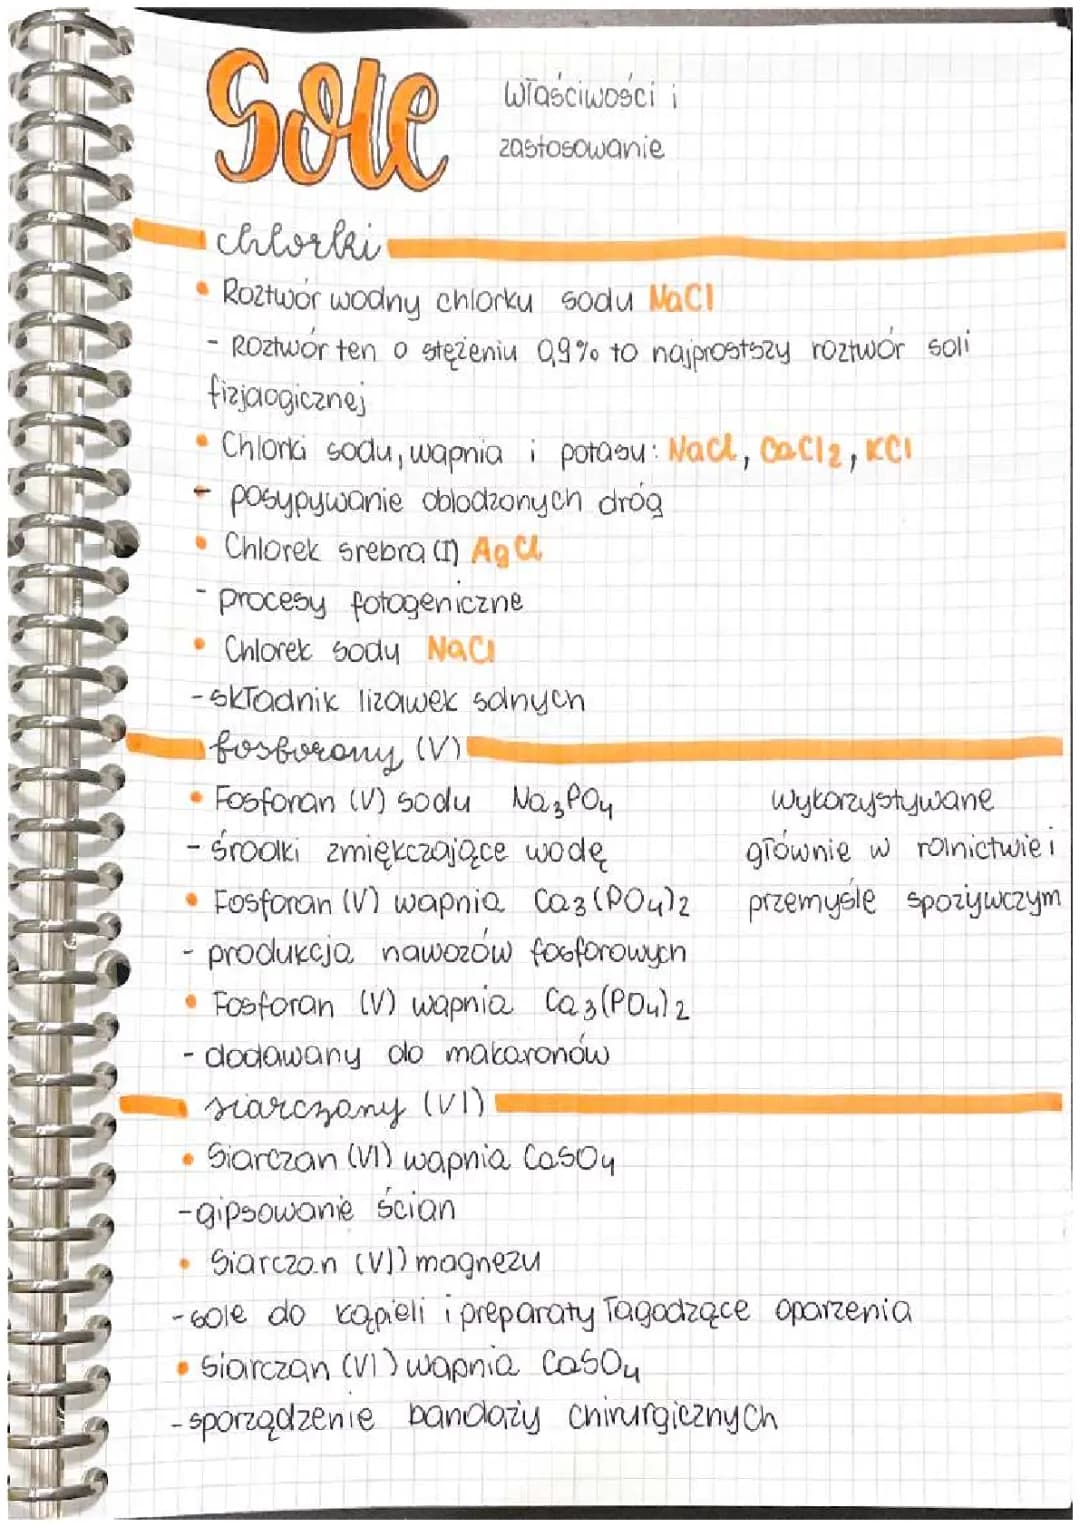 Sole
właściwości i
zastosowanie
chlorki
• Roztwór wodny chlorku sodu NaCl
- Roztwór ten o stężeniu 0,9% to najprostszy roztwór soli
fizjaogicznej
• Chlorki sodu, wapnia i potasu: NaCl, CaCl2, KCl
- posypywanie oblodzonych dróg
• Chlorek srebra (I) AgCl
- procesy fotogeniczne
• Chlorek sodu NaCl
- składnik lizawek solnych
fosforany (V)
• Fosforan (V) sodu Na3PO4
- środki zmiękczające wodę
• Fosforan (V) wapnia Ca3(PO4)2
- produkcja nawozów fosforowych
• Fosforan (V) wapnia Ca3(PO4)2
- dodawany do makaronów
wykorzystywane
głównie w rolnictwie i
przemyśle spożywczym
siarczany (VI)
• Siarczan (VI) wapnia CaSO4
- gipsowanie ścian
• Siarczan (VI) magnezu
- sole do kąpieli i preparaty łagodzące oparzenia
• Siarczan (VI) wapnia CaSO4
- sporządzenie bandaży chirurgicznych